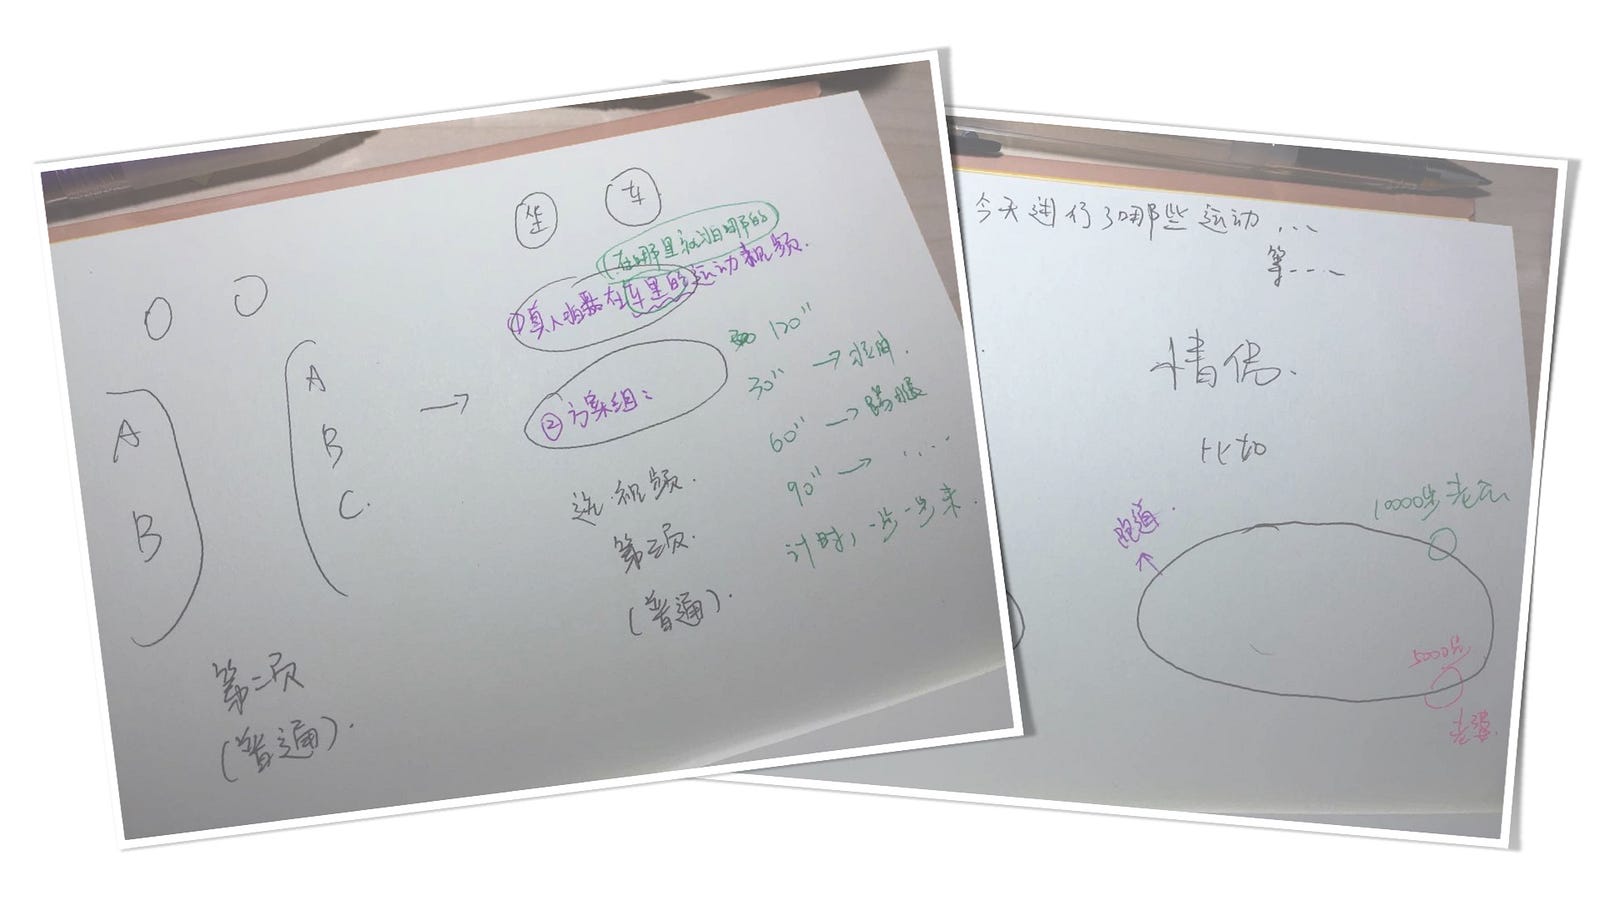 坐 车
(在哪里就拍哪的
①真人拍摄在车里的运动视频.
A
B
A
B
C.
→
②方案组:
120"
30" →
60" → 踢腿
90" → ...
计时, 一步一步来.
选视频.
第三页.
(普通).
第二页
(普通).
今天进行了哪些运动...
等----
情侣.
比如
跑道.
10000步老公
5000步
老婆